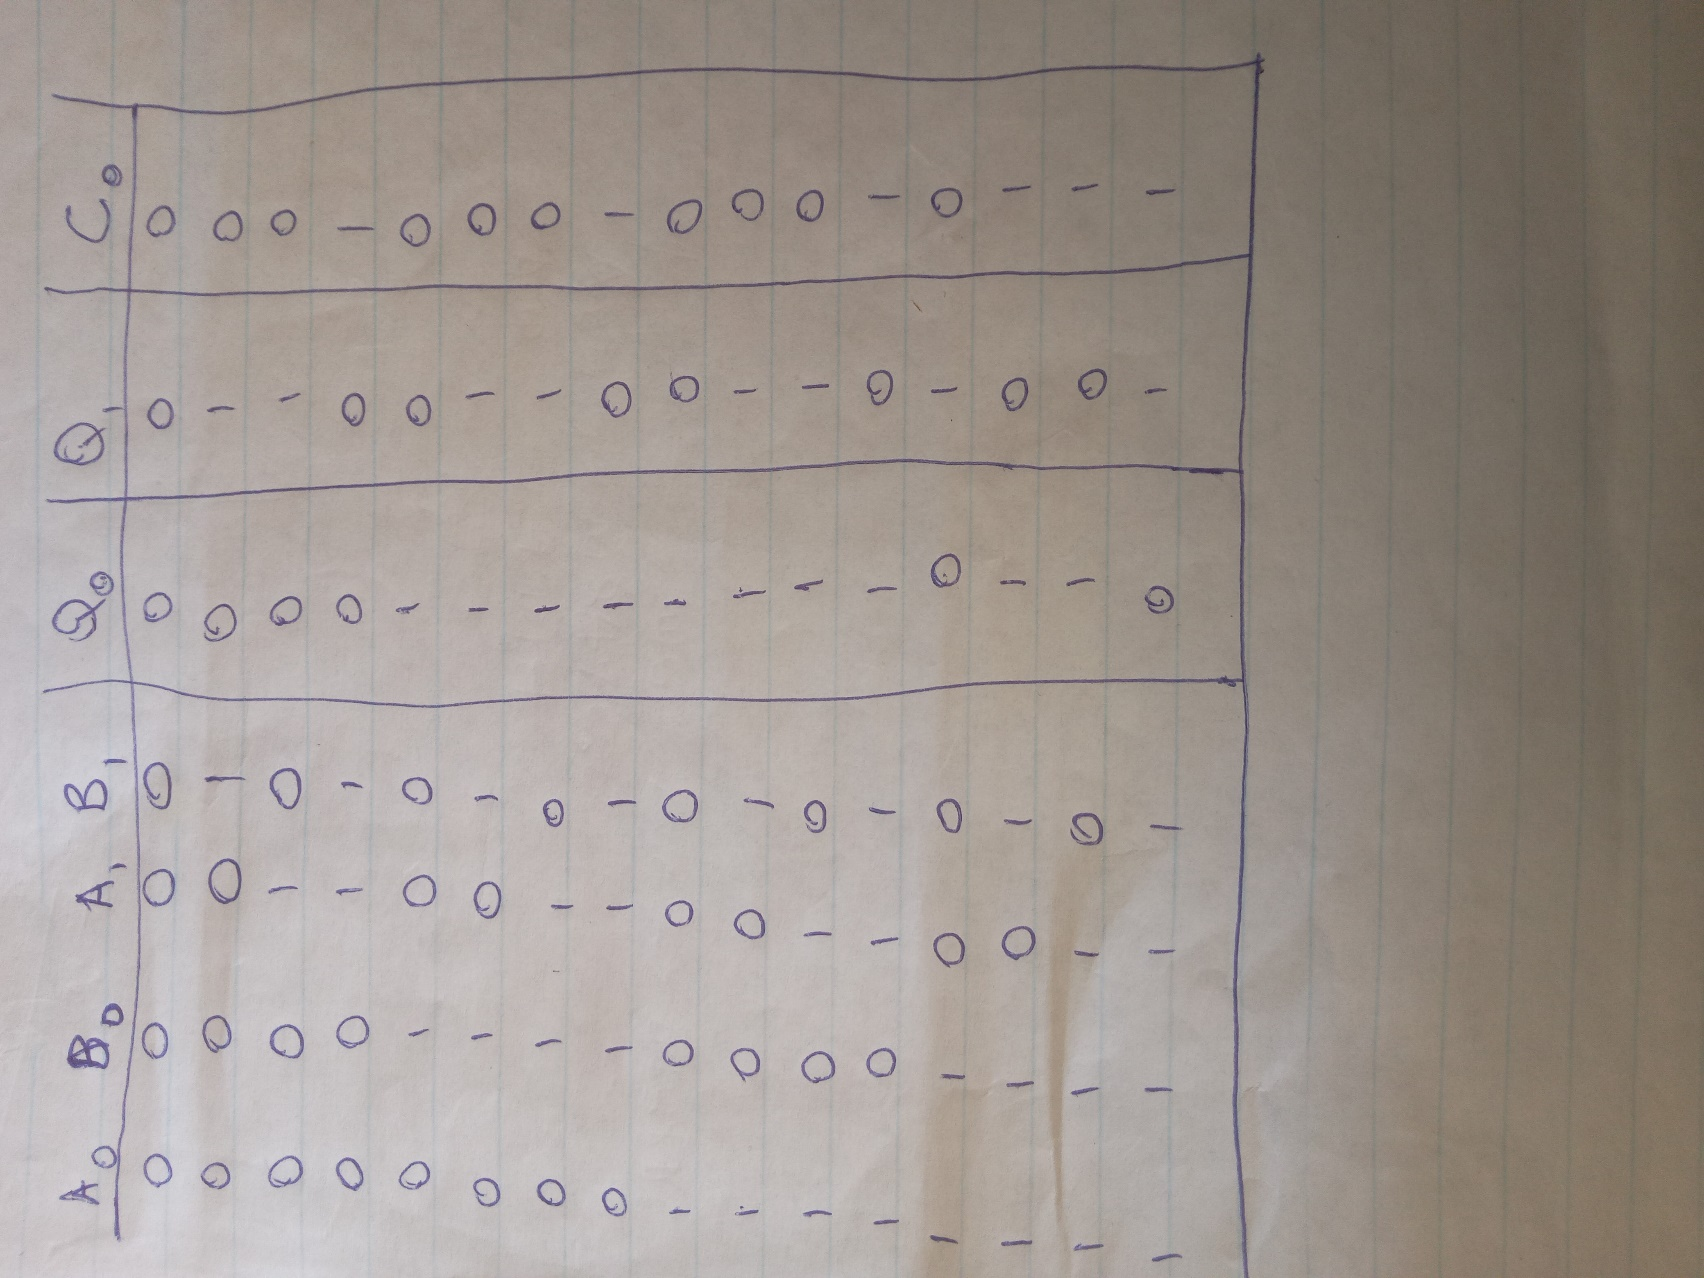 A0 B0 A1 B1 Q0 Q1 C0
0 0 0 0 0 0 0
0 0 0 1 0 1 0
0 0 1 0 0 1 0
0 0 1 1 0 0 1
0 1 0 0 1 0 0
0 1 0 1 1 1 0
0 1 1 0 1 1 0
0 1 1 1 1 0 1
1 0 0 0 1 0 0
1 0 0 1 1 1 0
1 0 1 0 1 1 0
1 0 1 1 1 0 1
1 1 0 0 0 1 0
1 1 0 1 1 0 1
1 1 1 0 1 0 1
1 1 1 1 0 1 1